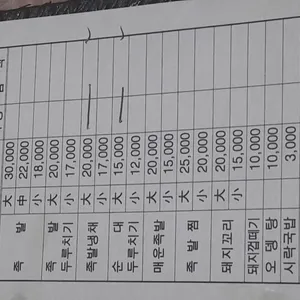 족 발
大 30,000
中 22,000
小 18,000
족 발
두루치기
大 20,000
小 17,000
족발냉채
大 20,000
小 17,000
순 대
두루치기
大 15,000
小 12,000
매운족발
大 20,000
小 15,000
족 발 찜
大 25,000
小 20,000
돼지꼬리
大 20,000
小 15,000
돼지껍떼기 10,000
오 뎅 탕 10,000
시락국밥 3,000